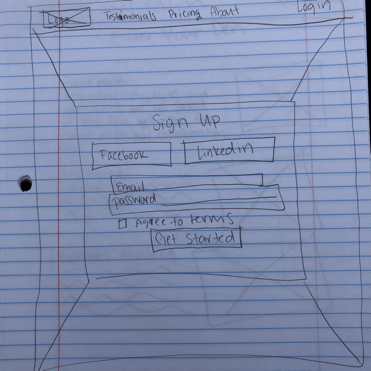 Logo Testimonials Pricing About Login
Sign Up
Facebook Linkedin
Email
password
Agree to terms
Get Started